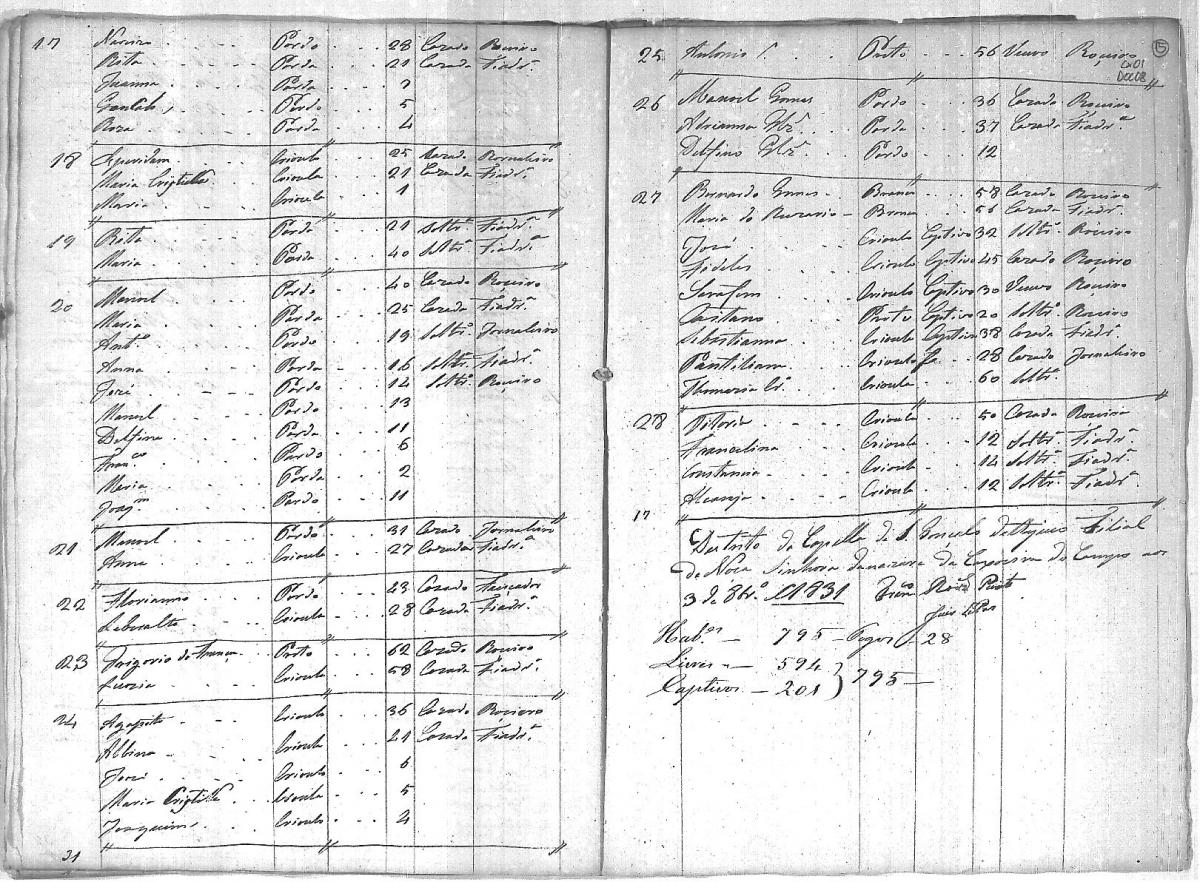 17 Narcizo Pardo 28 Cazado Roceiro
Rita Parda 21 Cazada Fiadr.ª
Joanna Parda 7
Pardo 5
Roza Parda 4
18 Crioulo 25 Cazado Jornaleiro
Maria Crioula 21 Cazada Fiadr.ª
Maria Crioula 1
19 Rita Parda 21 Soltr.ª Fiadr.ª
Maria Parda 40 Soltr.ª Fiadr.ª
20 Manoel Pardo 40 Cazado Roceiro
Maria Parda 25 Cazada Fiadr.ª
Ant.º Pardo 19 Soltr.º Jornaleiro
Anna Parda 16 Soltr.ª Fiadr.ª
Joze Pardo 14 Soltr.º Roceiro
Manoel Pardo 13
Delfina Parda 11
Fran.co Pardo 6
Maria Parda 2
Joaq.m Pardo 11
21 Manoel Pardo 31 Cazado Jornaleiro
Anna Crioula 27 Cazada Fiadr.ª
22 Florianno Pardo 43 Cazado Faiscador
Crioula 28 Cazada Fiadr.ª
23 Grigorio da Preto 62 Cazado Roceiro
Luzia Crioula 58 Cazada Fiadr.ª
24 Agapito Crioulo 36 Cazado Roceiro
Albina Crioula 21 Cazada Fiadr.ª
Joze Crioulo 6
Maria Crioula 5
Joaquim Crioulo 2
31
25 Antonio Preto 56 Veuvo Roceiro
15
Cx01
Doc08
26 Manoel Gomes Pardo 36 Cazado Roceiro
Adrianna Parda 37 Cazada Fiadr.ª
Delfino Pardo 12
27 Bernardo Gomes Branco 58 Cazado Roceiro
Maria do Rozario Branca 56 Cazada Fiadr.ª
Jozé Crioulo Captivo 32 Soltr.º Roceiro
Fideles Crioulo Captivo 45 Cazado Roceiro
Serafim Crioulo Captivo 30 Veuvo Roceiro
Caitano Preto Captivo 20 Soltr.º Roceiro
Sebastianna Crioula Captiva 38 Cazada Fiadr.ª
Crioulo 28 Cazado Jornaleiro
Crioula 60 Soltr.ª
28 Vitoria Crioula 50 Cazada Roceira
Francelina Crioula 12 Soltr.ª Fiadr.ª
Constancia Crioula 14 Soltr.ª Fiadr.ª
Crioula 12 Soltr.ª Fiadr.ª
17
Destrito da Capella de S. Gonçalo Filial
de Noça Sinhora da Cachoeira do Campo aos
3 de 8br.º 1831 Preto
Juis de Pas
Hab.es 795 Fogos 28
Livres 594
Captivos 201 } 795